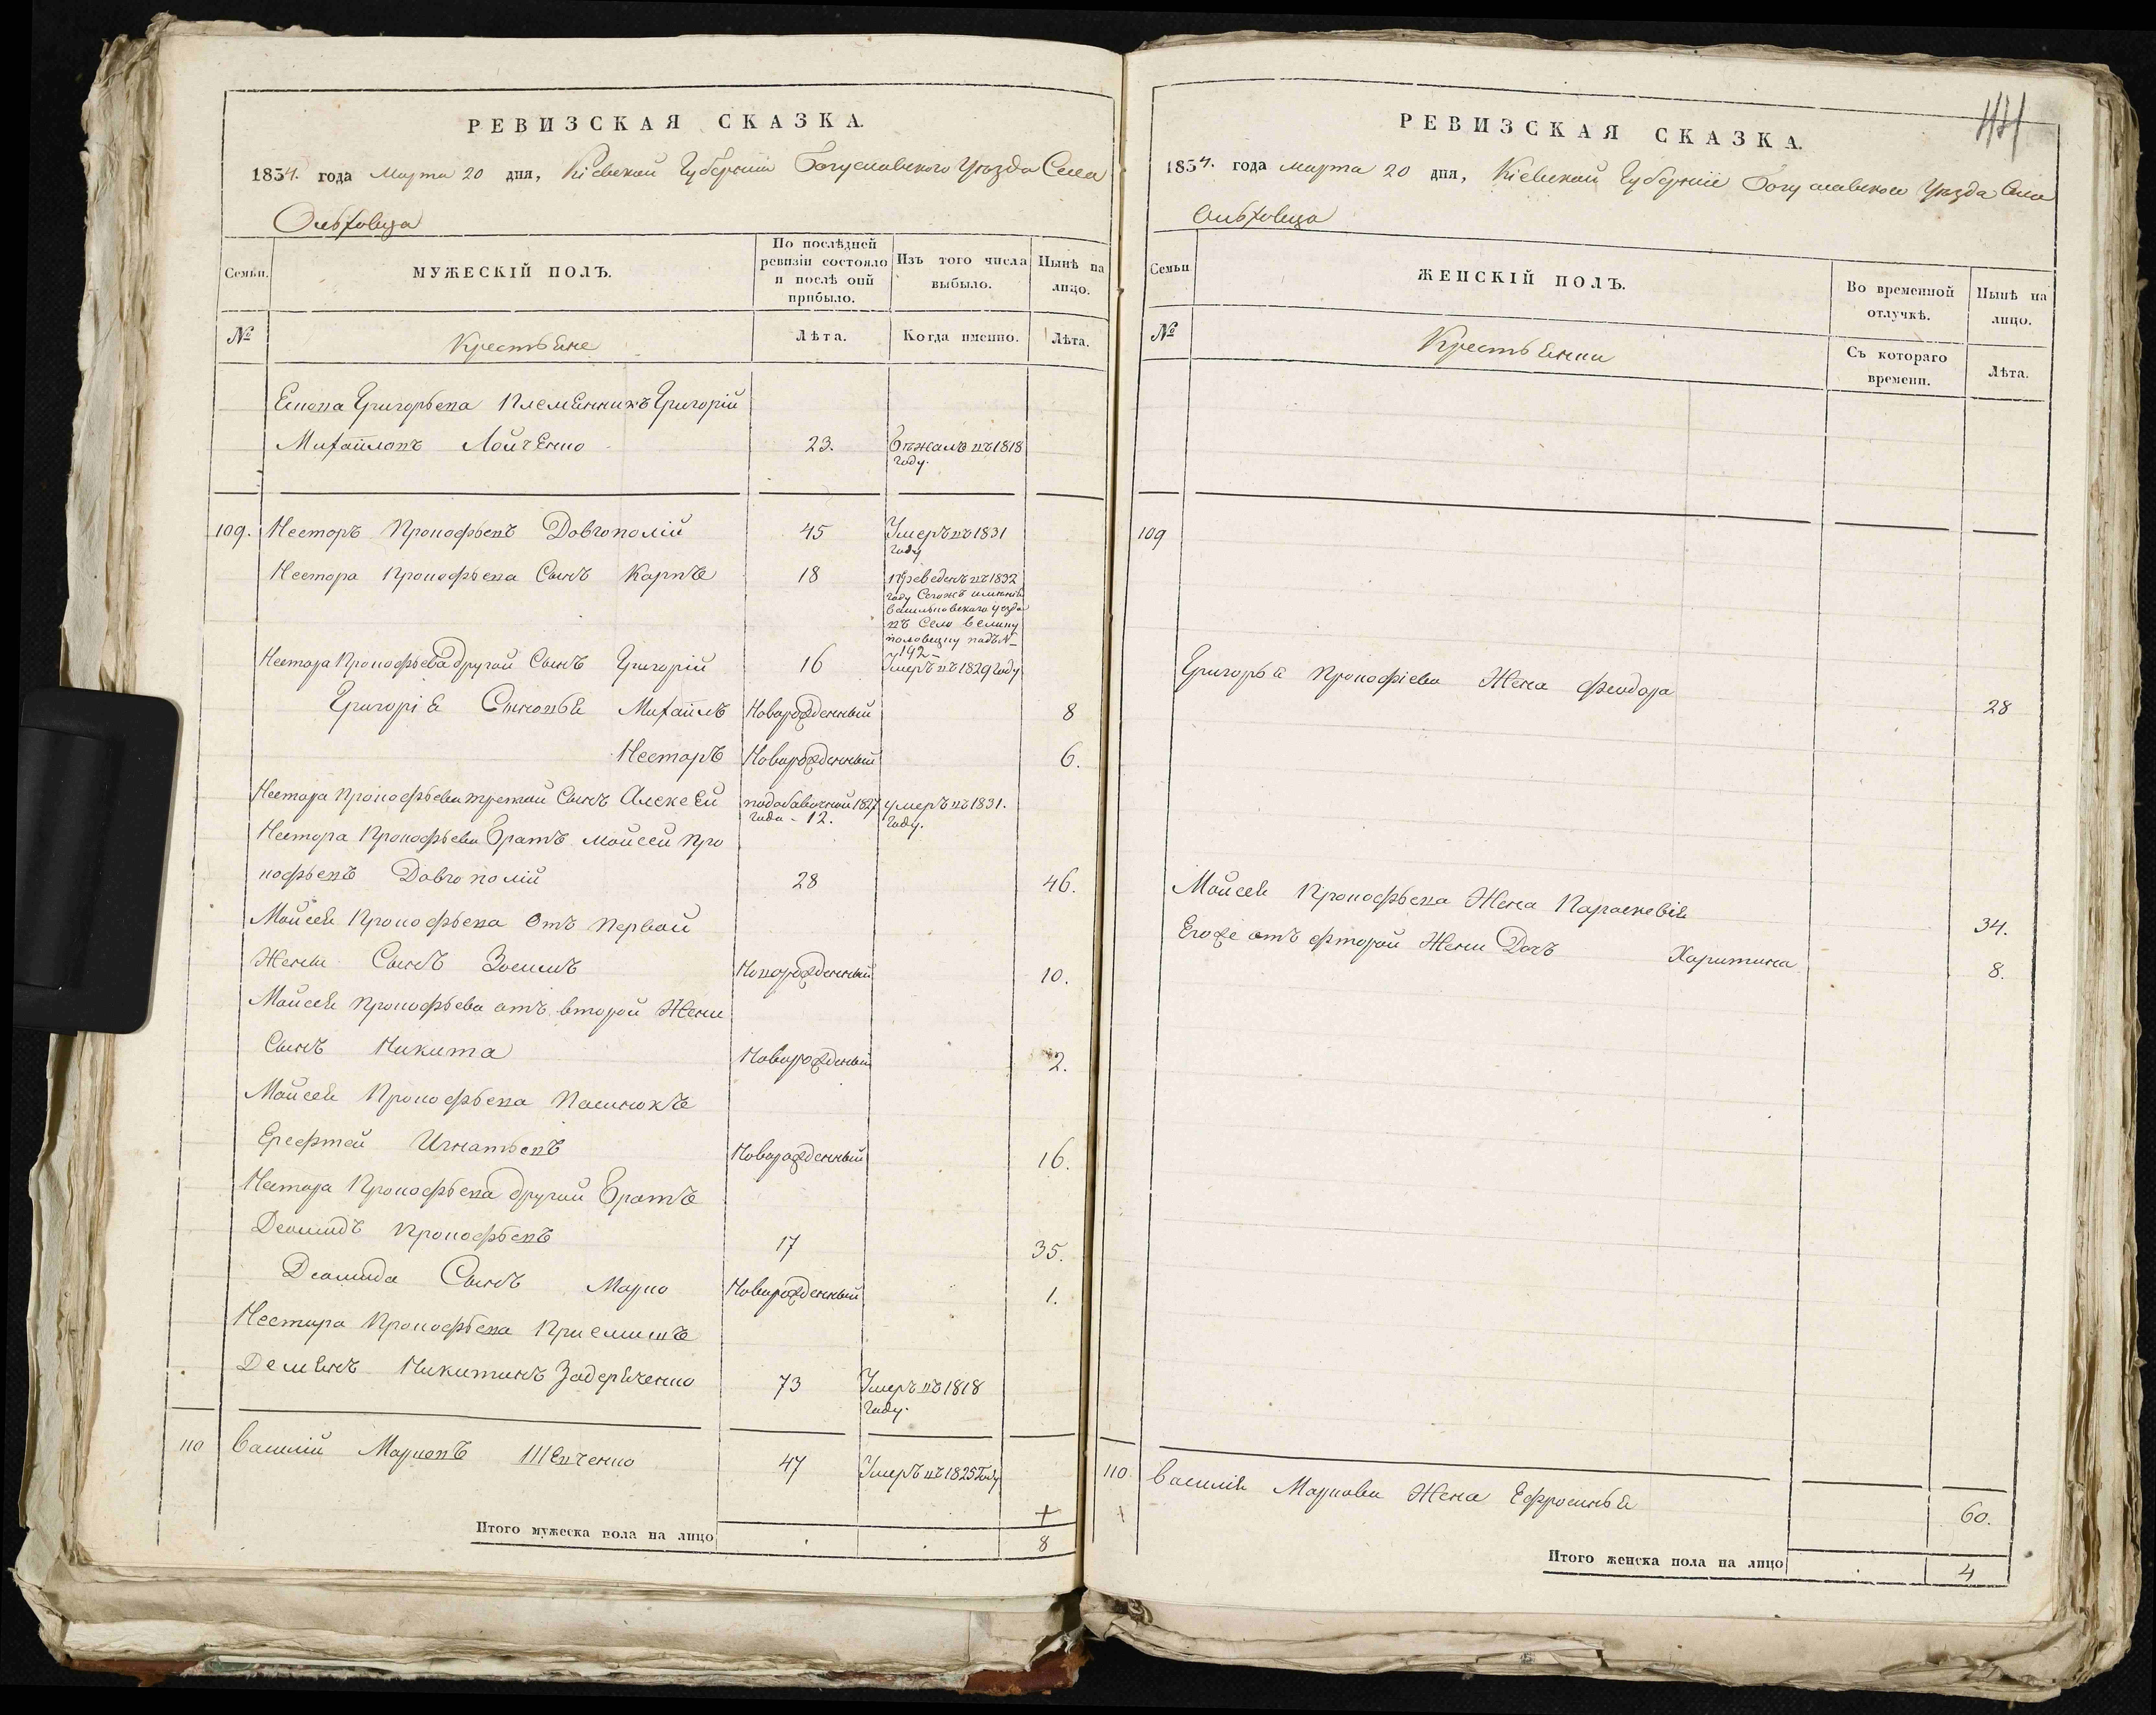 РЕВИЗСКАЯ СКАЗКА.
1834. года Марта 20 дня, Кіевской Губерніи Богуславского Уѣзда Села
Ольховца
Семьи.
МУЖЕСКІЙ ПОЛЪ.
По послѣдней ревизіи состояло и послѣ оной прибыло.
Изъ того числа выбыло.
Нынѣ на лицо.
№
Крестьяне
Лѣта.
Когда именно.
Лѣта.
Григорьева Племянникъ Григорій
Михайловъ Лойченко 23. бѣжалъ въ 1818 году.
109. Несторъ Прокофьевъ Довгополій 45 Умеръ въ 1831 году
Нестора Прокофьева Сынъ Карпъ 18 переведенъ въ 1832
году Сегожъ имѣнія
васильковского уезда
въ Село велику
половецку подъ N
142
Нестора Прокофьева другой Сынъ Григорій 16 Умеръ въ 1829 Году
Григорія Сыновья Михайлъ Новорожденный 8
Несторъ Новорожденный 6.
Нестора Прокофьева третий Сынъ Алексей подобавочной 1827 года - 12. умеръ въ 1831. Году.
Нестора Прокофьева братъ Мойсей Про
кофьевъ Довгополій 28 46.
Мойсея Прокофьева Отъ Первой
Жены Сынъ Зосимъ Новорожденный 10.
Мойсея Прокофьева отъ второй Жени
Сынъ Никита Новорожденый 2.
Мойсея Прокофьева Пасынокъ
Ерефтей Игнатьевъ Новорожденный 16.
Нестора Прокофьева другой братъ
Деомидъ Прокофьевъ 17 35.
Деомида Сынъ Марко Новорожденный 1.
Нестора Прокофьева Приемишъ
Демянъ Никитинъ Задеряченко 73 Умеръ въ 1818 Году.
110 Василій Марковъ Шевченко 47 Умеръ въ 1825 Году
+
Итого мужеска пола на лицо 8
РЕВИЗСКАЯ СКАЗКА.
1834. года Марта 20 дня, Кіевской Губерніи Богуславского Уѣзда Села
Ольховца
Семьи
ЖЕНСКІЙ ПОЛЪ.
Во временной отлучкѣ.
Нынѣ на лицо.
№
Крестьянки
Съ котораго времени.
Лѣта.
109
Григорья Прокофіева Жена Феодора 28
Мойсея Прокофьева Жена Параскевія 34.
Егоже отъ фторой Жени Дочъ Харитина 8.
110 Василія Маркова Жена Ефросинья 60.
+
Итого женска пола на лицо 4